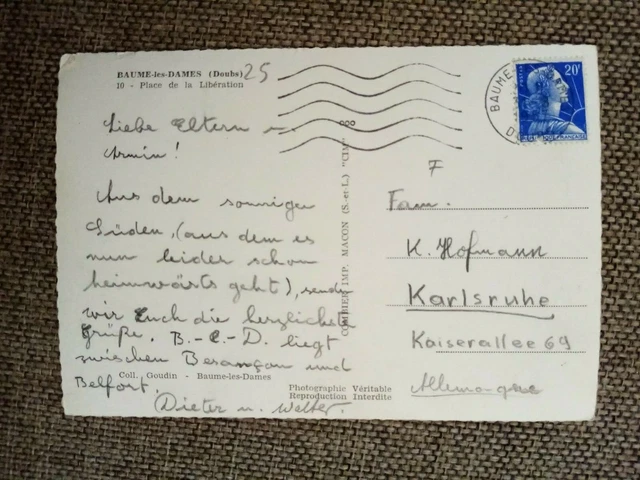 BAUME-les-DAMES (Doubs) 25
10 - Place de la Libération
Liebe Eltern u.
Armin!
Aus dem sonnigen
Süden, (aus dem es
nun leider schon
heimwärts geht), senden
wir Euch die herzlichsten
Grüße. B.-l.-D. liegt
zwischen Besançon und
Belfort.
Dieter u. Walter.
Coll. Goudin - Baume-les-Dames
Photographie Véritable
Reproduction Interdite
COMBIER IMP. MACON (S.-et-L.) "CIM"
BAUME
20F
POSTES
F
Fam.
K. Hofmann
Karlsruhe
Kaiserallee 69
Allemagne